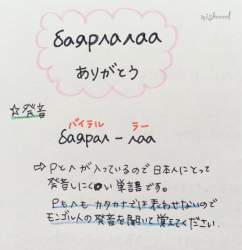 баярлалаа
ありがとう
☆発音
バイラル ラー
баярал – лаа
⇨ PとЛが入っているので日本人にとって
発音しにくい単語です。
PもЛもカタカナでは表わせないので
モンゴル人の発音を聞いて覚えてください。